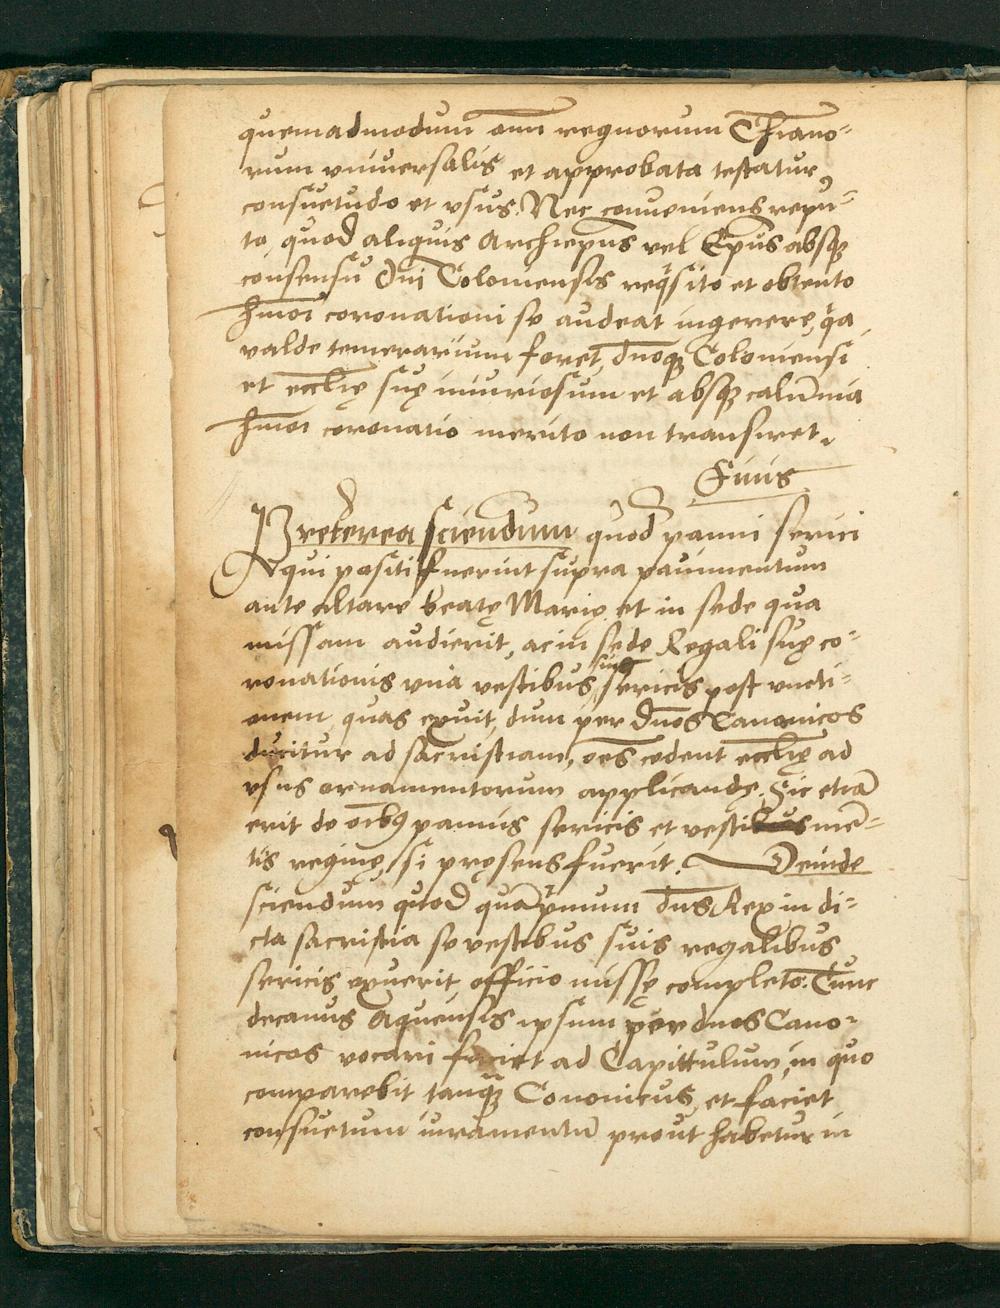 quemadmodum om̄i regnorum Chr̄iano-
rum vniuersalis et approbata testatur
consuetudo et vsus. Nec conueniens repu-
to, quod aliquis Archiepūs vel Epūs absq
consensu dn̄i Coloniensis req̄sito et obtento
hm̄oi coronationi se audeat ingerere, q̄a
valde temerarium foret, dn̄oq Coloniensi
et ecclīę suę iniuriosum et absq calum̄nia
hm̄oi coronatio merito non transiret.
Finis
Pretērea sciendum quod panni serici
qui positi fuerint supra pauimentum
ante altare beatę Marię et in sede qua
missam audierit, ac in sede Regali suę co-
ronationis vna vestibus suis sericis post vncti-
onem, quas exuit, dum per dn̄os Canonicos
ducitur ad sacristiam, oēs cedent ecclīę ad
vsus ornamentorum applicandę. Sic etiā
erit de oībꝰ pannis sericis et vestimē-
tis reginę, si pręsens fuerit. Deinde
sciendum quod quā p̄mum dn̄s Rex in di-
cta sacristia se vestibus suis regalibus
sericis exuerit officio missę completo: Tunc
decanus Aquensis ipsum per dnos Cano-
nicos vocari faciet ad Capittulum, in quo
comparebit tanq̄ Cononicus, et faciet
consuetum iuramentū prout habetur in